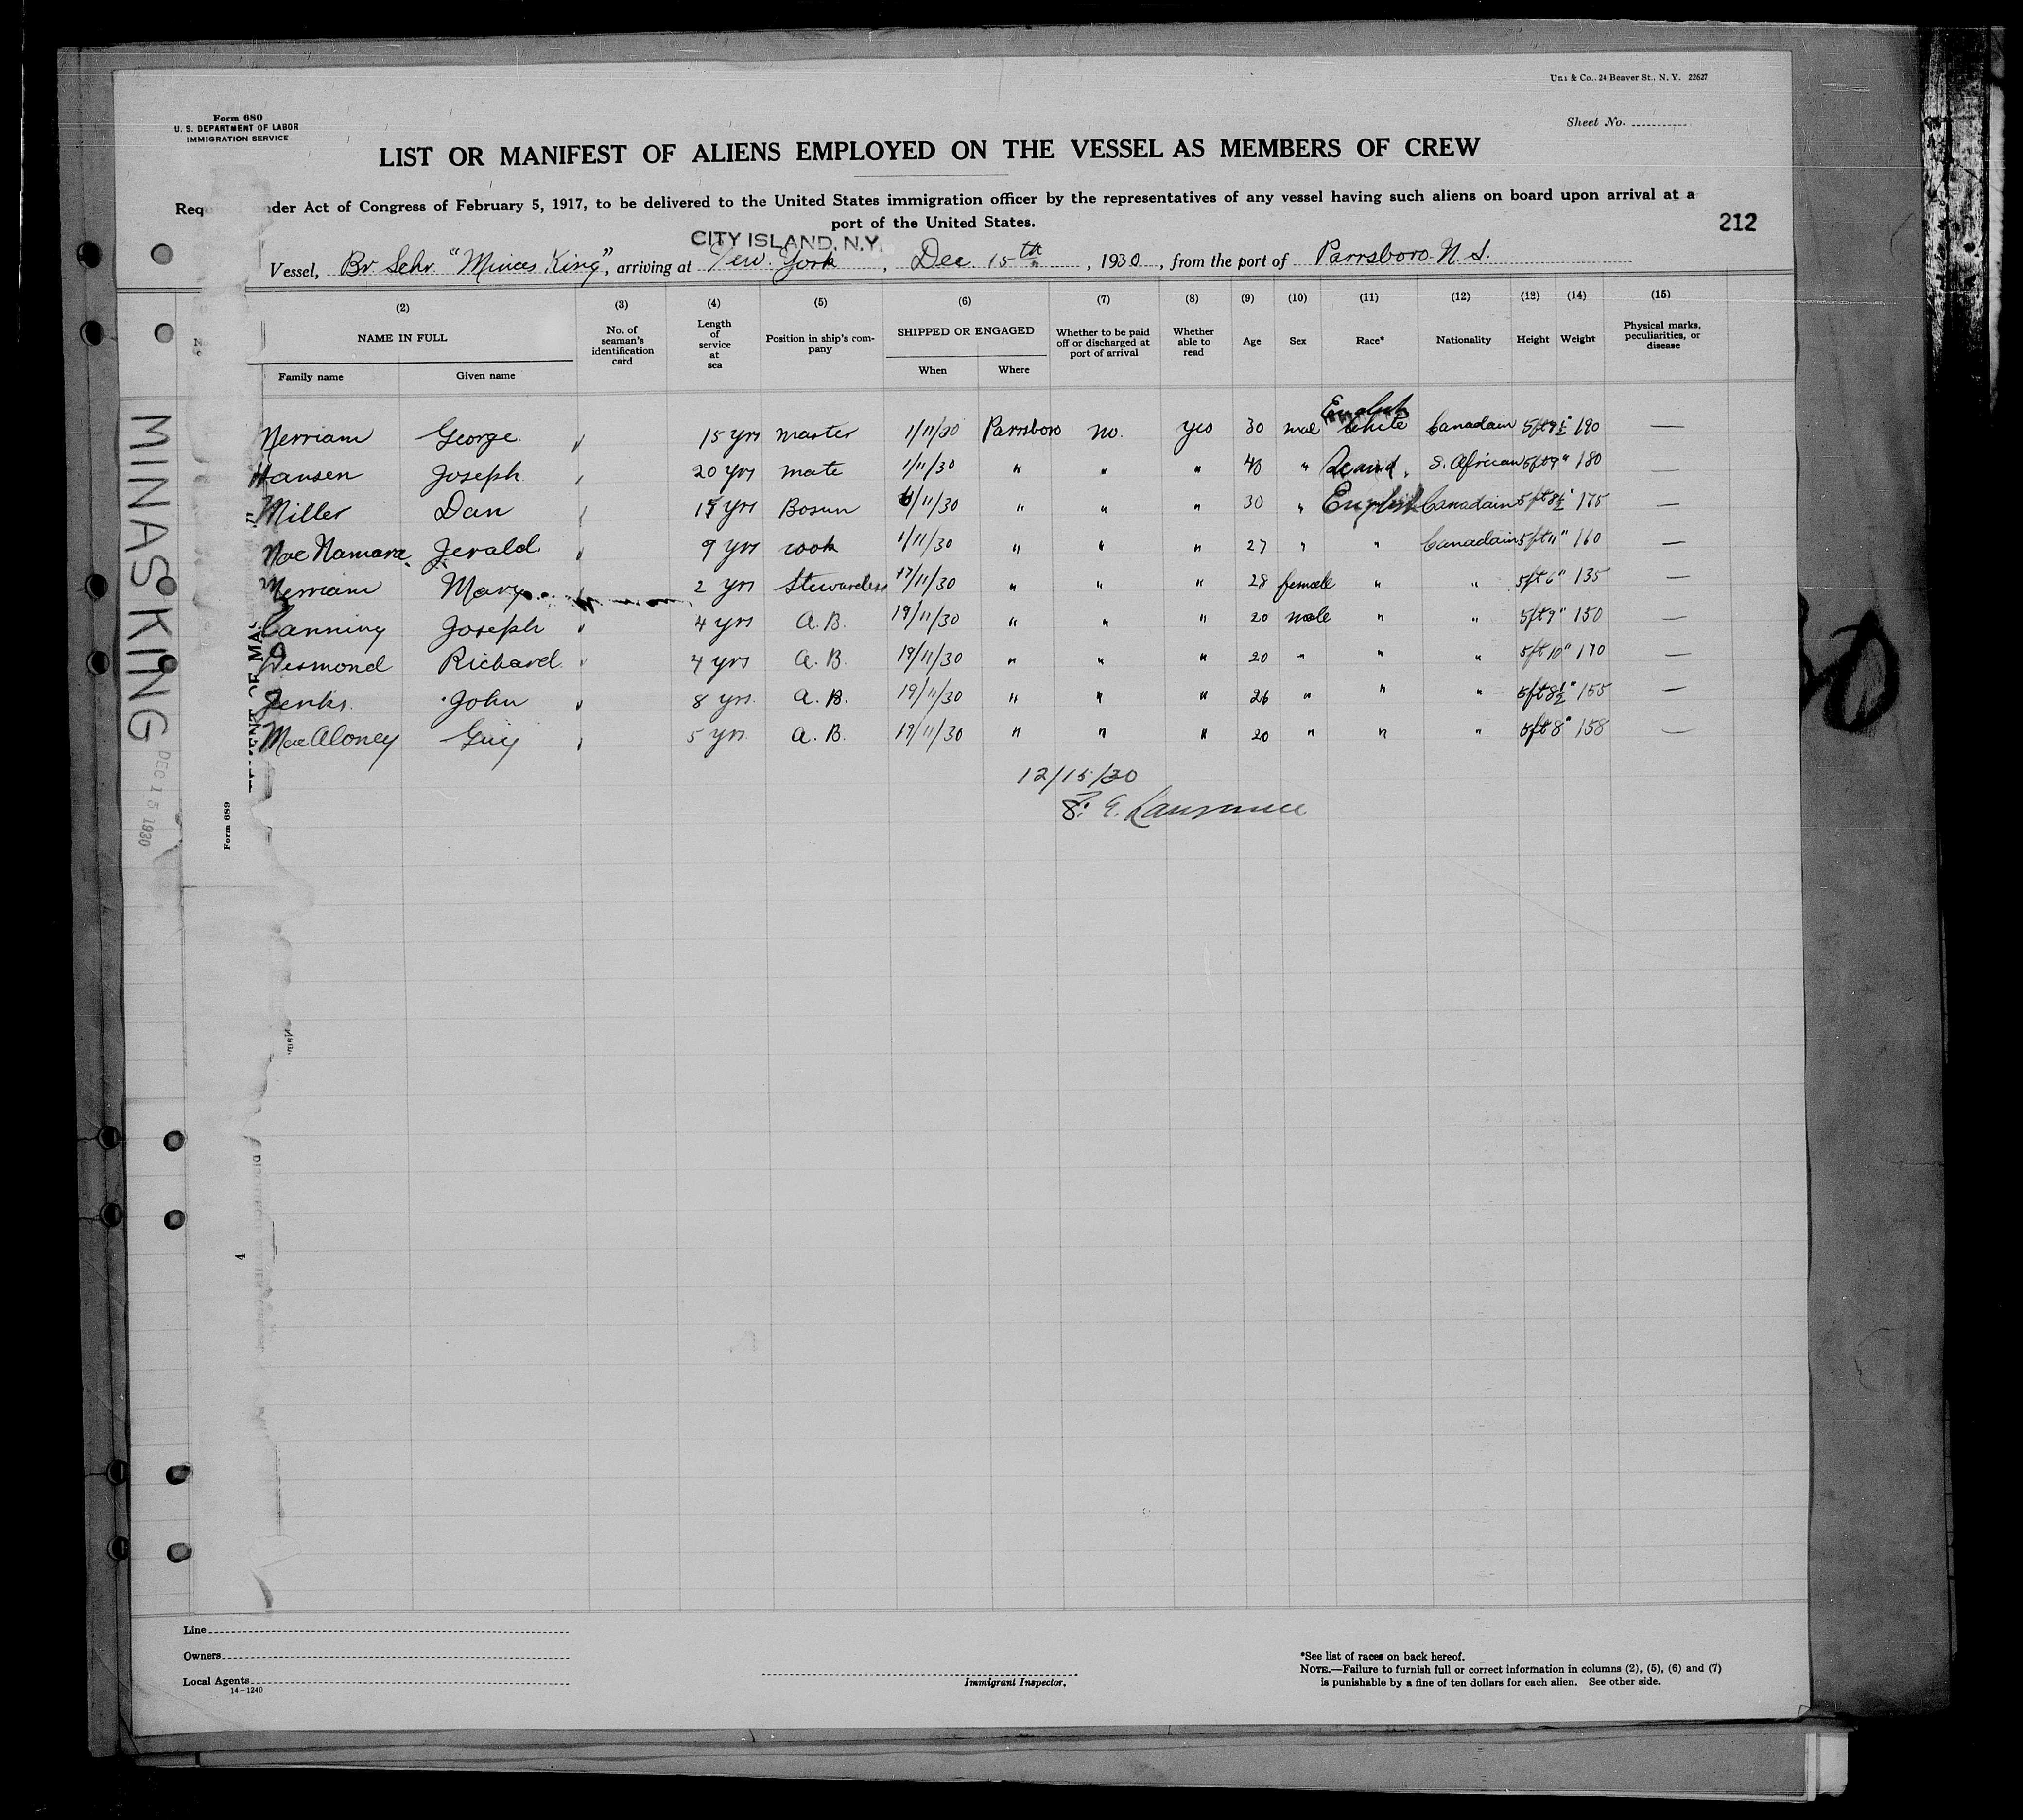 Co., 24 Beaver St., N. Y. 22627
Form 680
U. S. DEPARTMENT OF LABOR
IMMIGRATION SERVICE
Sheet No.
LIST OR MANIFEST OF ALIENS EMPLOYED ON THE VESSEL AS MEMBERS OF CREW
under Act of Congress of February 5, 1917, to be delivered to the United States immigration officer by the representatives of any vessel having such aliens on board upon arrival at a
port of the United States.
212
CITY ISLAND, N.Y.
Vessel, Br Schr "Minas King", arriving at New York, Dec. 15th, 1930, from the port of Parrsboro N. S.
(2) (3) (4) (5) (6) (7) (8) (9) (10) (11) (12) (13) (14) (15)
NAME IN FULL No. of seaman's identification card Length of service at sea Position in ship's company SHIPPED OR ENGAGED Whether to be paid off or discharged at port of arrival Whether able to read Age Sex Race* Nationality Height Weight Physical marks, peculiarities, or disease
Family name Given name When Where
English
Merriam George 15 yrs master 1/11/30 Parrsboro no. yes 30 mal White Canadain 5ft 8½" 190 —
Hansen Joseph 20 yrs mate 1/11/30 " " " 40 " Scand. S. African 5ft 9" 180 —
Miller Dan 15 yrs Bosun /11/30 " " " 30 " English Canadain 5ft 8½" 175 —
MacNamara Jerald 9 yrs cook 1/11/30 " " " 27 " " Canadain 5ft 11" 160 —
Merriam Mary 2 yrs Stewardess 17/11/30 " " " 28 female " " 5ft 6" 135 —
Canning Joseph 4 yrs A. B. 19/11/30 " " " 20 male " " 5ft 9" 150 —
Desmond Richard 4 yrs A. B. 19/11/30 " " " 20 " " " 5ft 10" 170 —
Jenks John 8 yrs A. B. 19/11/30 " " " 26 " " " 5ft 8½" 155 —
MacAloney Guy 5 yrs A. B. 19/11/30 " " " 20 " " " 5ft 8" 158 —
12/15/30
E. Laurence
MINAS KING
DEC 15 1930
Form 689
4
Line
Owners
Local Agents
14-1240
Immigrant Inspector.
*See list of races on back hereof.
NOTE.—Failure to furnish full or correct information in columns (2), (5), (6) and (7)
is punishable by a fine of ten dollars for each alien. See other side.